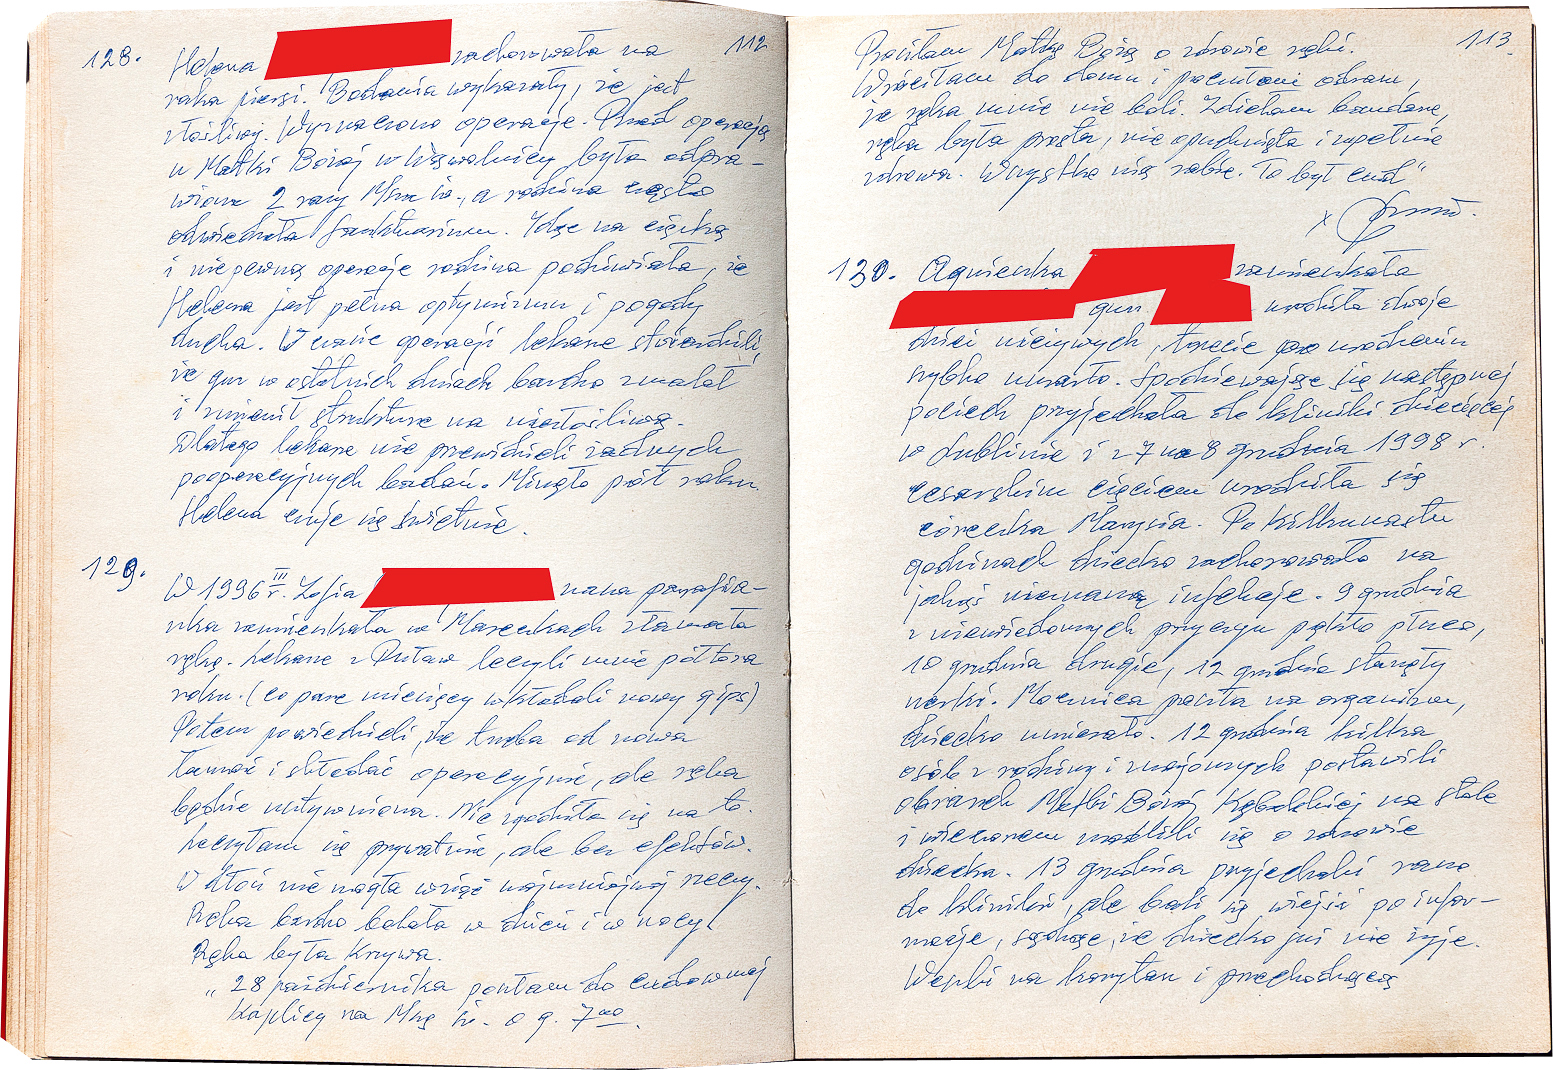 128. Helena zachorowała na 112
raka piersi. Badania wykazały, że jest
złośliwy. Wyznaczono operację. Przed operacją
u Matki Bożej w Wąwolnicy była odpra-
wiona 2 razy Msza św., a rodzina często
odwiedzała Sanktuarium. Idąc na ciężką
i niepewną operację rodzina podziwiała, że
Helena jest pełna optymizmu i pogody
ducha. W czasie operacji lekarze stwierdzili,
że guz w ostatnich dniach bardzo zmalał
i zmienił strukturę na niezłośliwą.
Dlatego lekarze nie przewidzieli żadnych
pooperacyjnych badań. Minęło pół roku.
Helena czuje się świetnie.
129. W 1996 III r. Zofia nasza parafian-
nka zamieszkała w Mareczkach złamała
rękę. Lekarze z Puław leczyli mnie półtora
roku. (co parę miesięcy wkładali nowy gips)
Potem powiedzieli, że trzeba od nowa
łamać i składać operacyjnie, ale ręka
będzie usztywniona. Nie zgodziła się na to.
Leczyłam się prywatnie, ale bez efektów.
W dłoń nie mogła wziąć najmniejszej rzeczy.
Ręka bardzo bolała w dzień i w nocy.
Ręka była krzywa.
„28 października poszłam do cudownej
Kaplicy na Mszę św. o g. 7⁰⁰.
Prosiłam Matkę Bożą o zdrowie ręki. 113
Wróciłam do domu i poczułam odrazu,
że ręka mnie nie boli. Zdjęłam bandaże,
ręka była prosta, nie opuchnięta i zupełnie
zdrowa. Wszystko nią robię. To był cud"
x
130. Agnieszka zamieszkała
gm. urodziła dwoje
dzieci nieżywych, trzecie po urodzeniu
szybko umarło. Spodziewając się następnej
pociechy przyjechała do kliniki dziecięcej
w Lublinie i z 7 na 8 grudnia 1998 r.
cesarskim cięciem urodziła się
córeczka Marysia. Po kilkunastu
godzinach dziecko zachorowało na
jakąś nieznaną infekcję. 9 grudnia
z niewiadomych przyczyn pękło płuco,
10 grudnia drugie, 12 grudnia stanęły
nerki. Mocznica poszła na organizm,
dziecko umierało. 12 grudnia kilka
osób z rodziny i znajomych postawili
obrazek Matki Bożej Kębelskiej na stole
i wieczorem modlili się o zdrowie
dziecka. 13 grudnia przyjechali rano
do kliniki, ale bali się wejść po infor-
macje, sądząc, że dziecko już nie żyje.
Weszli na korytarz i przechodzącą